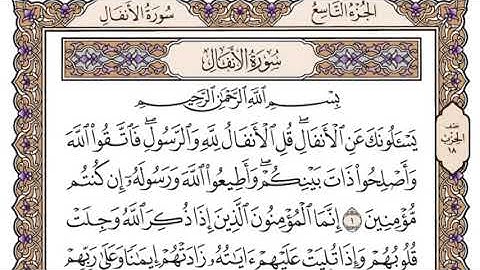 الجزء التاسع
سورة الأنفال
سُورَةُ الأَنفَالِ
بِسْمِ اللَّهِ الرَّحْمَٰنِ الرَّحِيمِ
يَسْـَٔلُونَكَ عَنِ ٱلْأَنفَالِۖ قُلِ ٱلْأَنفَالُ لِلَّهِ وَٱلرَّسُولِۖ فَٱتَّقُوا۟ ٱللَّهَ
وَأَصْلِحُوا۟ ذَاتَ بَيْنِكُمْۖ وَأَطِيعُوا۟ ٱللَّهَ وَرَسُولَهُۥٓ إِن كُنتُم
مُّؤْمِنِينَ ١ إِنَّمَا ٱلْمُؤْمِنُونَ ٱلَّذِينَ إِذَا ذُكِرَ ٱللَّهُ وَجِلَتْ
قُلُوبُهُمْ وَإِذَا تُلِيَتْ عَلَيْهِمْ ءَايَٰتُهُۥ زَادَتْهُمْ إِيمَٰنًا وَعَلَىٰ رَبِّهِمْ
نصف
الحزب
١٨